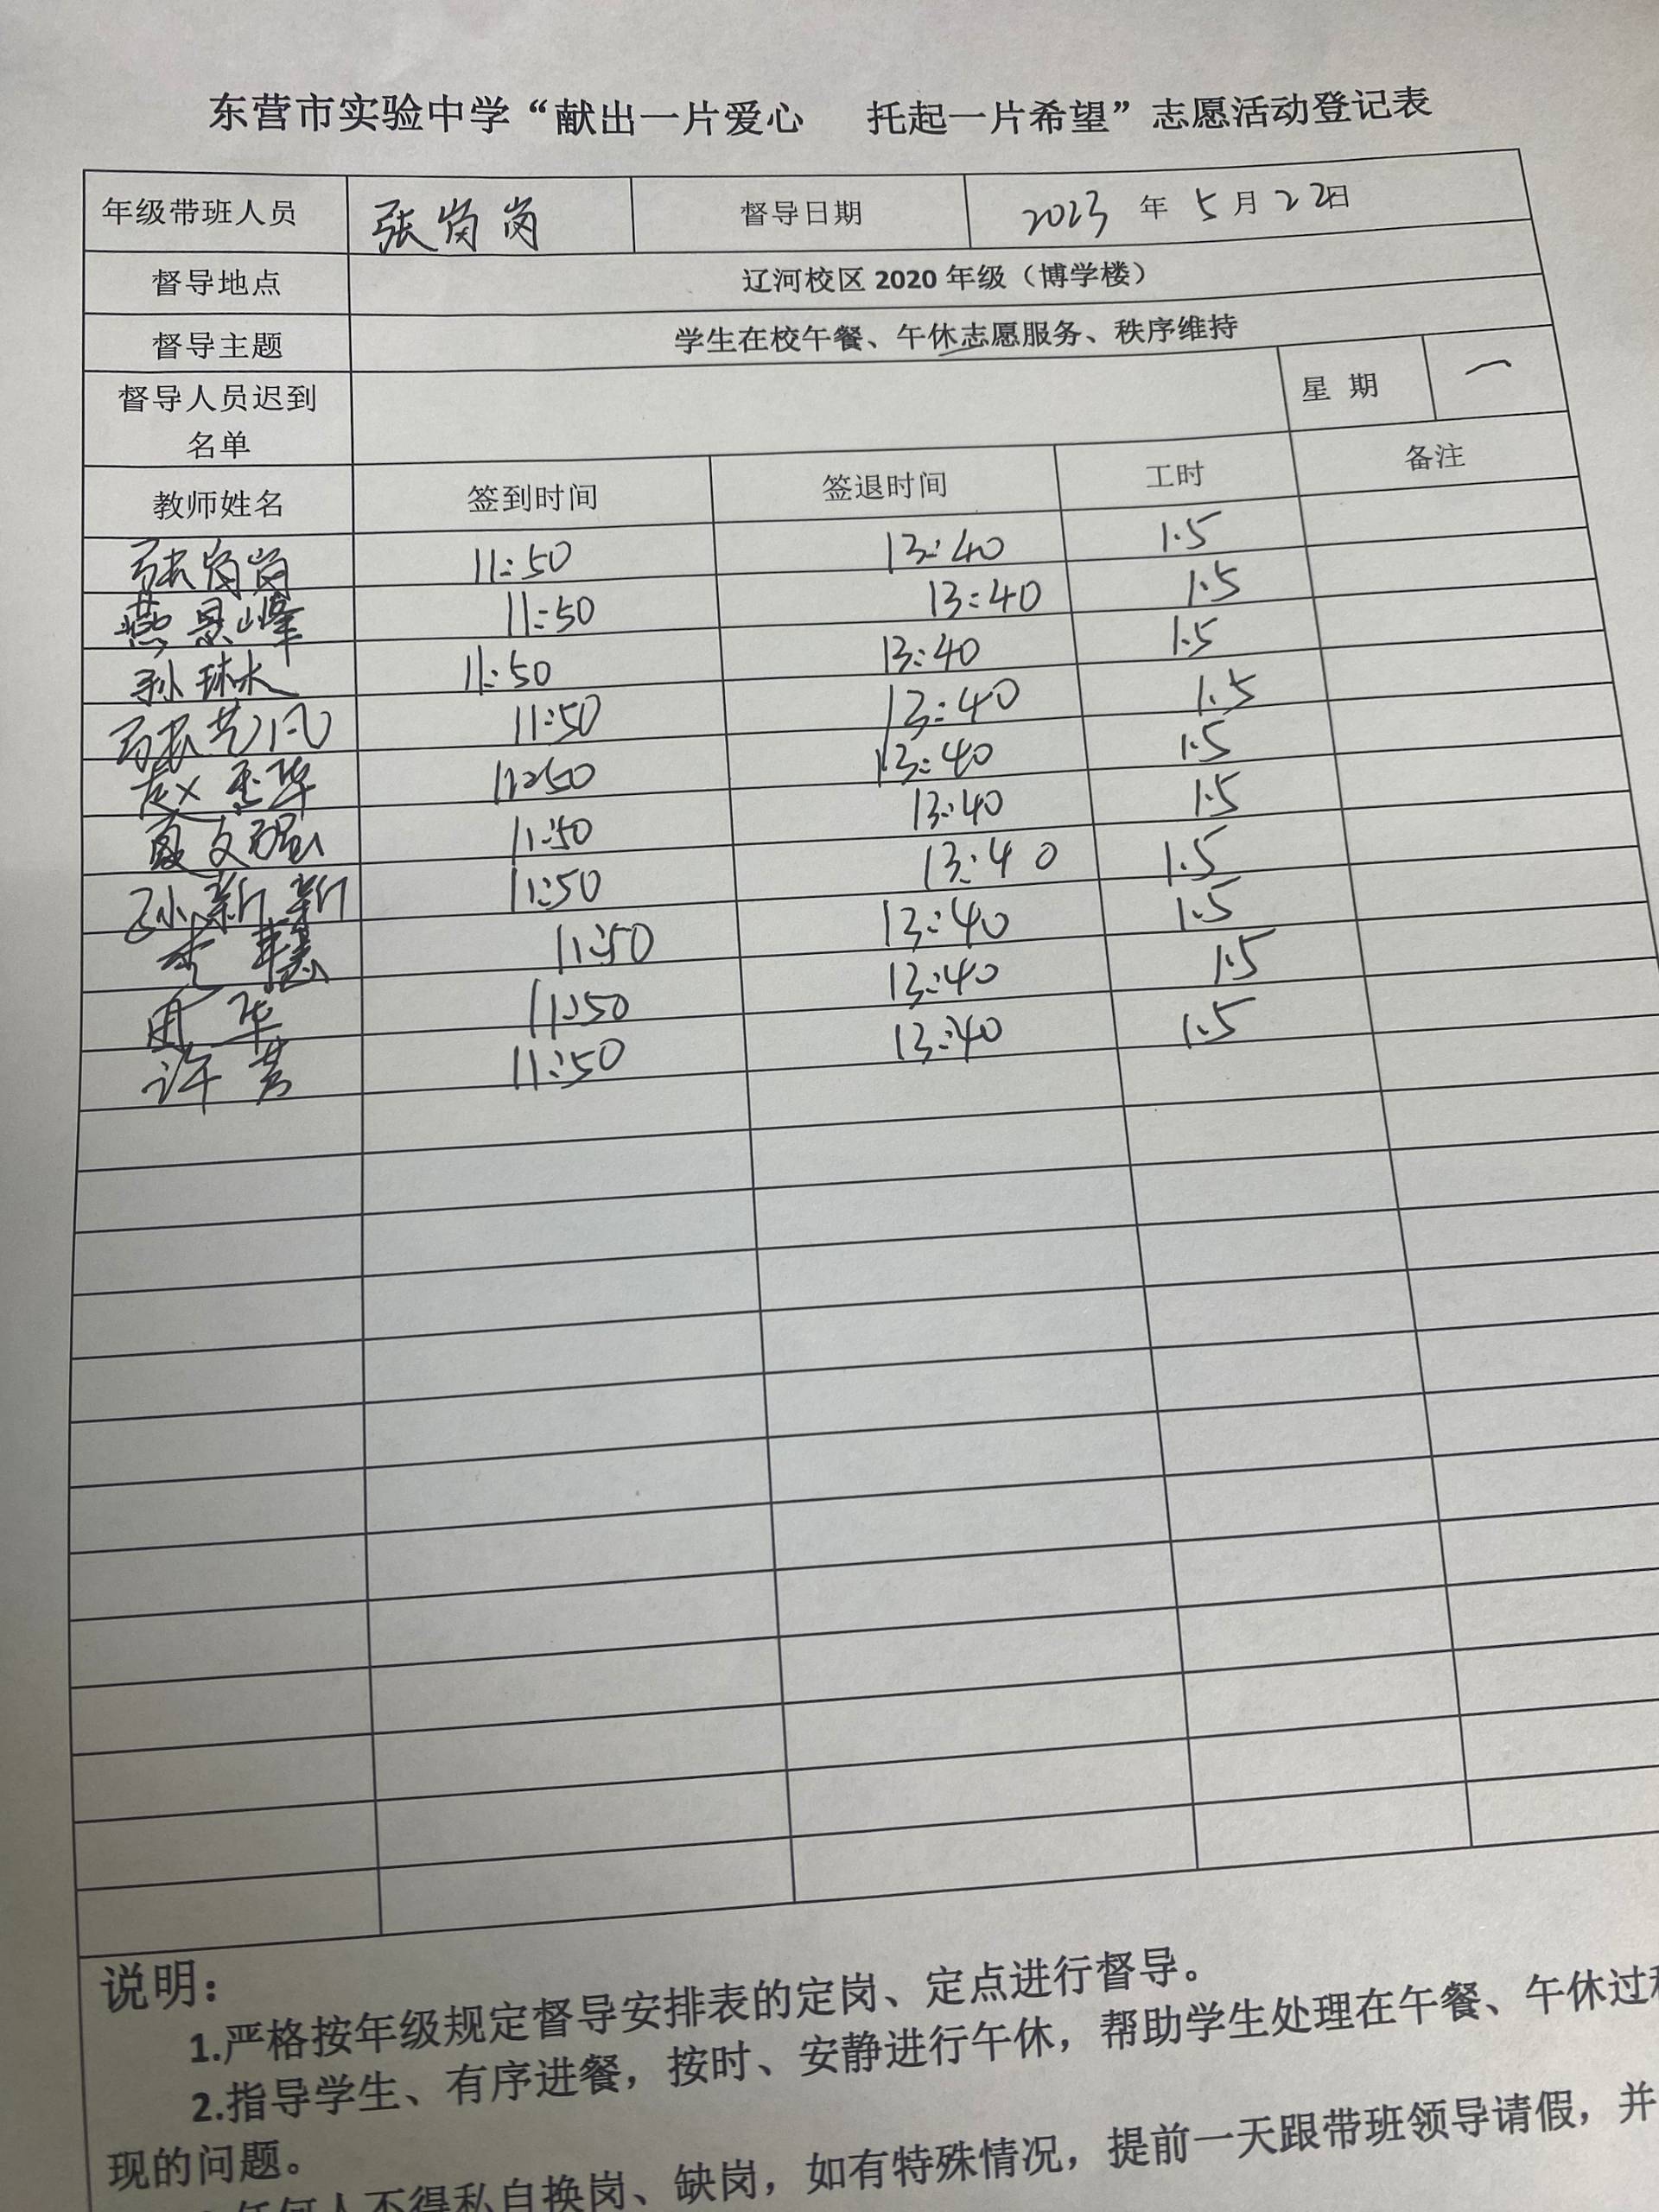 东营市实验中学“献出一片爱心 托起一片希望”志愿活动登记表
年级带班人员 张岗岗 督导日期 2023 年 5 月 22日
督导地点 辽河校区 2020 年级（博学楼）
督导主题 学生在校午餐、午休志愿服务、秩序维持
督导人员迟到 星 期 一
名单
教师姓名 签到时间 签退时间 工时 备注
张岗岗 11:50 13:40 1.5
燕景峰 11:50 13:40 1.5
孙琳 11:50 13:40 1.5
张艺凡 11:50 13:40 1.5
赵 华 11:50 13:40 1.5
夏文强 11:50 13:40 1.5
孙新新 11:50 13:40 1.5
李慧 11:50 13:40 1.5
田华 11:50 13:40 1.5
许芳 11:50 13:40 1.5
说明：
1.严格按年级规定督导安排表的定岗、定点进行督导。
2.指导学生、有序进餐，按时、安静进行午休，帮助学生处理在午餐、午休过
现的问题。
任何人不得私自换岗、缺岗，如有特殊情况，提前一天跟带班领导请假，并